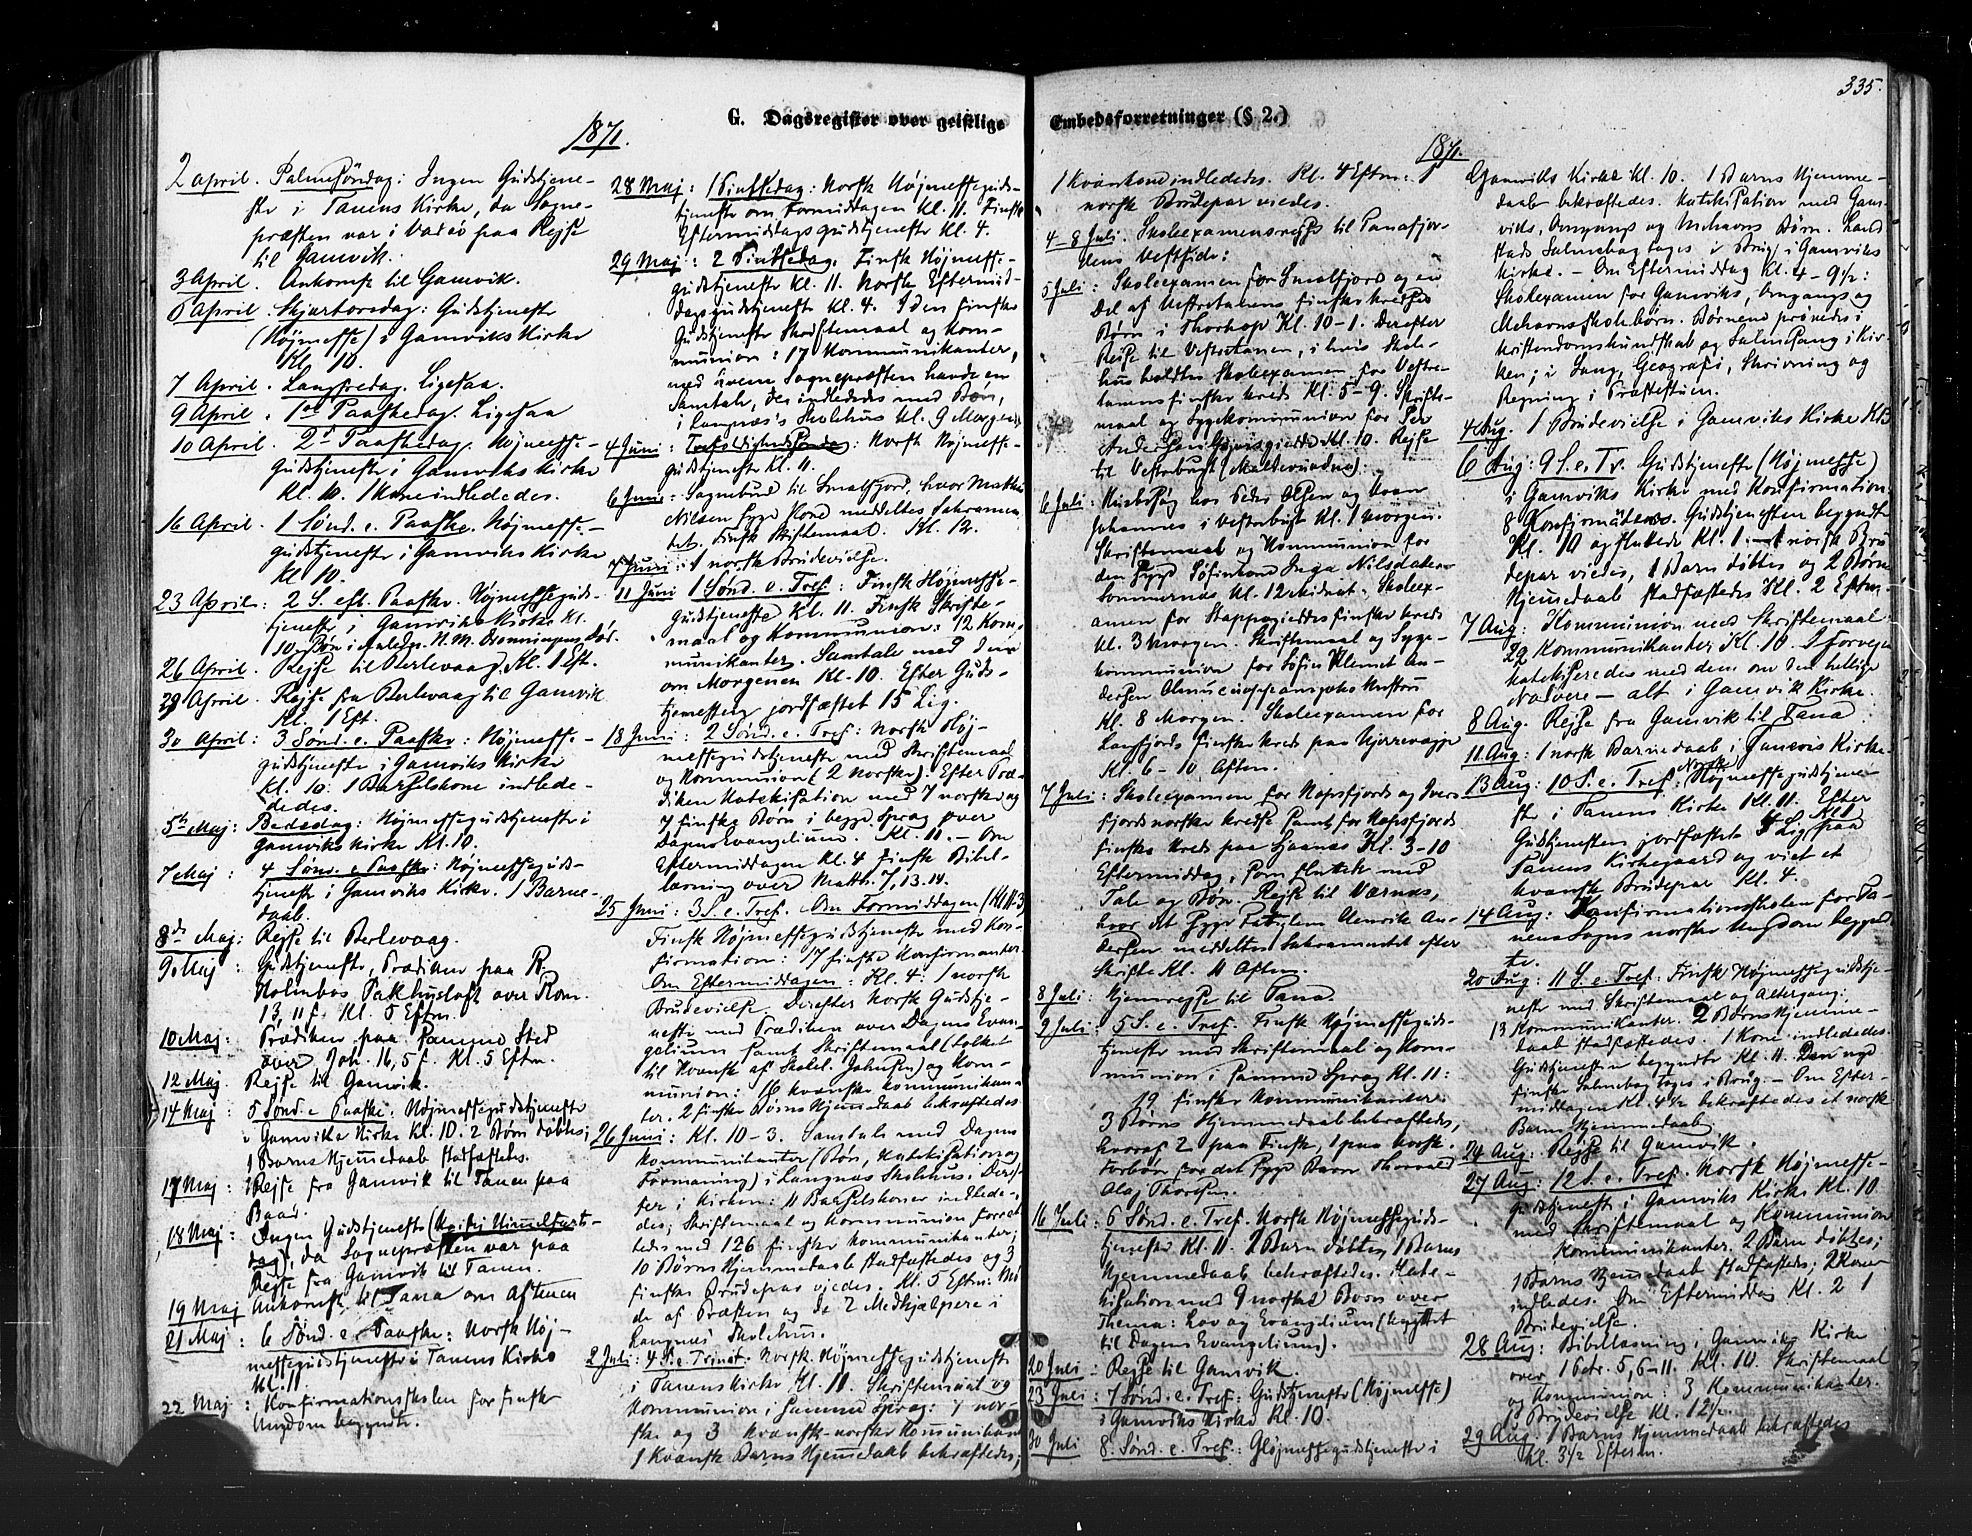 335.
G. Dagsregister over geistlige
Embedsforretninger (§ 2.)
1871.
2 April. Palmesöndag: Ingen Gudstjene-
ste i Tanens Kirke, da Sogne-
præsten var i Vadsö paa Rejse
til Gamvik.
3 April. Ankomst til Gamvik.
6 April. Skjærtorsdag: Gudstjeneste
(Højmesse) i Gamviks Kirke
Kl. 10.
7 April. Langfredag. Ligesaa.
9 April: 1ste Paaskedag. Ligesaa
10 April. 2d Paaskedag. Højmesse-
gudstjeneste i Gamviks Kirke
Kl. 10. 1 Kone indlededes.
16 April. 1 Sønd. e. Paaske. Højmesse-
gudstjeneste i Gamviks Kirke
Kl 10.
23 April: 2 S. eft. Paaske. Højmesseguds-
tjeneste i Gamviks Kirke Kl.
10. Bøn i Anledn. H. M. Dronningens Død.
26 April. Rejse til Berlevaag. Kl. 1 Eft.
29 April. Rejse fra Berlevaag til Gamvik
Kl. 1 Eft.
30 April: 3 Sønd. e. Paaske: Højmesse-
gudstjeneste i Gamviks Kirke
Kl. 10. 1 Barselkone indlede-
dedes.
5te Maj: Bededag: Højmessegudstjeneste i
Gamviks Kirke Kl. 10.
7 Maj: 4 Sønd. e. Paaske: Højmesseguds-
tjeneste i Gamviks Kirke. 1 Barne-
daab.
8de Maj: Rejse til Berlevaag.
9. Maj: Gudstjeneste, Prædiken paa R.
Holmbos Pakhusloft over Rom.
13, 11 f. Kl. 5 Eftm.
10 Maj: Prædiken paa samme Sted
over Joh. 16, 5 f. Kl. 5 Eftm.
12 Maj. Rejse til Gamvik.
14 Maj: 5 Sønd. e Paaske: Højmessegudstjeneste
i Gamviks Kirke Kl. 10. 2 Børn døbtes;
1 Barns Hjemmedaab stadfæstedes.
17 Maj: Rejse fra Gamvik til Tanen paa
Baad.
18 Maj: Ingen Gudstjeneste (Kristi Himmelfarts-
dag), da Sognepræsten var paa
Rejse fra Gamvik til Tanen.
19 Maj Ankomst til Tana om Aftenen
21 Maj: 6 Sønd. e. Paaske: Norsk Høj-
messegudstjeneste i Tanens Kirke
Kl. 11
22 Maj: Konfirmationsskolen for finsk
Ungdom begyndte.
28 Maj: 1 Pintsedag: Norsk Højmesseguds-
tjeneste om Formiddagen Kl. 11. Finsk
Eftermiddagsgudstjeneste Kl. 4.
29 Maj: 2 Pintsedag. Finsk Højmesse-
gudstjeneste Kl. 11. Norsk Eftermid-
dagsgudstjeneste Kl. 4. I den finske
Gudstjeneste Skriftemaal og Kom-
munion: 17 Kommunikanter,
med hvem Sognepræsten havde en
Samtale, der indlededes med Bøn,
i Langnæs's Skolehus Kl. 9 Morgen.
4 Juni: Trefoldighedssøndag: Norsk Højmesse-
gudstjeneste Kl. 11.
6 Juni: Sognebud til Smalfjord, hvor Mathis
Nilsens syge Kone meddeltes Sakramen-
tet. Finsk Skriftemaal. Kl. 12.
7 Juni: 1 norsk Brudevielse.
11 Juni 1 Sønd. e. Tref.: Finsk Højmesse-
Gudstjeneste Kl. 11. Finsk Skrifte-
maal og Kommunion: 12 Kom-
munikanter. Samtale med dem
om Morgenen Kl. 10. Efter Guds-
tjenesten jordfæstet 15 Lig.
18 Juni: 2 Sønd. e. Tref: Norsk Høj-
messegudstjeneste med Skriftemaal
og Kommunion (2 Norske). Efter Præ-
diken Katekisation med 7 norske og
7 finske Børn i begge Sprog over
Dagens Evangelium. Kl. 11. – Om
Eftermiddagen Kl. 4 finsk Bibel-
læsning over Matth. 7, 13. 14.
25 Juni: 3 S. e. Tref. Om Formiddagen (Kl 11-3)
Finsk Højmessegudstjeneste med Kon-
firmation: 17 finske Konfirmanter.
Om Eftermiddagen: Kl. 4: 1 norsk
Brudevielse. Derefter Norsk Gudstje-
neste med Prædiken over Dagens Evan-
gelium samt Skriftemaal (tolket
til Kvensk af Skolel. Johnsen) og Kom-
munion: 16 kvenske Kommunikan-
ter. 2 finske Børns Hjemmedaab bekræftedes
26 Juni: Kl. 10-3. Samtale med Dagens
Kommunikanter (Bøn, Katekisation og
Formaning) i Langnæs Skolehus. Deref-
ter i Kirken: 11 Barselkoner indlede-
des; Skriftemaal og Kommunion forret-
tedes med 126 finske Kommunikanter;
10 Børns Hjemmedaab stadfæstedes og 3
finske Brudepar viedes. Kl. 5 Eftm: Mø-
de af Præsten og de 2 Medhjælpere i
Langnæs Skolehus.
2 Juli: 4 S. e. Trinit. Norsk Højmessegudstjeneste
i Tanens Kirke Kl. 11. Skriftemaal og
Kommunion i samme Sprog: 7 nor-
ske og 3 kvensk-norske Kommunikant
1 Kvensk Barns Hjemmedaab bekræftedes;
1871.
1 Kvenkone indlededes. Kl. 4 Eftm: 1
norsk Brudepar viedes.
4-8 Juli. Skoleexamensrejse til Tanafjor-
dens Vestside:
5 Juli: Skoleexamen for Smalfjord og en
Del af Vestertanens finske Kredses
Børn i Thorhop Kl. 10-1. Derefter
Rejse til Vestertanen, i hvis Skole-
hus holdtes Skoleexamen for Vester-
tanens finske Kreds Kl. 5-9. Skrifte-
maal og Sygekommunion for Per
Andersen Kl. 10. Rejse
til Vesterbugt
6 Juli: Husbesøg hos Peder Olsen og Kven
Johannes i Vesterbugt Kl. 1 Morgen.
Skriftemaal og Kommunion for
den syge Søfinkone Inga Nilsdatter
Kl. 12 Midnat. Skoleex-
amen for finske Kreds
Kl. 3 Morgen. Skriftemaal og Syge-
kommunion for Søfin Klemet An-
dersen Hustru
Kl. 8 Morgen. Skoleexamen for
Langfjords finske Kreds paa
Kl. 6-10 Aften.
7 Juli: Skoleexamen for Hopsfjords og Ivers-
fjords norske Kredse samt for Hopsfjords
finske Kreds paa Kl. 3-10
Eftermiddag, som sluttede med
Tale og Bøn. Rejse til Værnæs,
hvor det syge Fatiglem Henrik An-
dersen meddeltes Sakramentet efter
Skrifte Kl. 11 Aften.
8 Juli: Hjemrejse til Tana.
9 Juli: 5 S. e. Tref. Finsk Højmesseguds-
tjeneste med Skriftemaal og Kom-
munion i samme Sprog Kl. 11:
19 finske Kommunikanter.
3 Børns Hjemmedaab bekræftedes,
hvoraf 2 paa Finsk, 1 paa Norsk.
Forbøn for det syge Barn Thorvald
Olaj Thoresen.
16 Juli: 6 Sønd. e. Tref. Norsk Højmesseguds-
tjeneste Kl. 11. 2 Barn døbtes, 1 Barns
Hjemmedaab bekræftedes. Kate-
kisation med 9 norske Børn over
Thema: Lov og Evangelium (knyttet
til Dagens Evangelium).
20 Juli – Rejse til Gamvik
23 Juli: 7 Sønd. e. Tref: Gudstjeneste (Højmesse)
i Gamviks Kirke Kl. 10.
30 Juli 8. Sønd. e. Tref.: Højmessegudstjeneste i
Gamviks Kirke Kl. 10. 1 Barns Hjemme-
daab bekræftedes. Katekisation med Gam-
viks, Omgangs og Mehavns Børn. Land-
stads Salmebog toges i Brug i Gamviks
Kirke. – Om Eftermiddag Kl. 4 - 9½:
Skoleexamen for Gamviks, Omgangs og
Mehavns Skolebørn. Børnene prøvedes i
Kristendomskundskab og Salmesang i Kir-
ken; i Sang, Geografi, Skrivning og
Regning i Præstestuen.
4 Aug. 1 Brudevielse i Gamviks Kirke Kl 3
6 Aug: 9 S. e. Tr. Gudstjeneste (Højmesse)
i Gamviks Kirke med Konfirmation.
8 Konfirmanter. Gudstjenesten begyndte
Kl. 10 og sluttede Kl. 1. 1 norsk Bru-
depar viedes, 1 Barn døbtes og 2 Børns
Hjemmedaab stadfæstedes Kl. 2 Eftm.
7 Aug: Kommunion med Skriftemaal
22 Kommunikanter Kl. 10. I Forvejen
katekiseredes med dem om den hellige
Nadvere – alt i Gamvik Kirke.
8 Aug. Rejse fra Gamvik til Tana.
11. Aug: 1 norsk Barnedaab i Tanens Kirke.
13 Aug: 10 S. e. Tref: Norsk Højmessegudstjene-
ste i Tanens Kirke Kl. 11. Efter
Gudstjenesten jordfæstet Lig paa
Tanens Kirkegaard og viet et
kvensk Brudepar Kl. 4.
14 Aug: Konfirmationsskolen for Ta-
nens Sogns norske Ungdom begynd-
te.
20 Aug: 11 S. e. Tref: Finsk Højmessegudstje-
neste med Skriftemaal og Altergang:
13 Kommunikanter. 2 Børns Hjemme-
daab stadfæstedes. 1 Kone indlededes.
Gudstjenesten begyndte Kl. 11. Den nye
finske Salmebog toges i Brug. – Om Efter-
middagen Kl. 4½ bekræftedes et norsk
Barns Hjemmedaab.
24 Aug: Rejse til Gamvik.
27 Aug: 12 S. e. Tref. Norsk Højmesse-
gudstjeneste i Gamviks Kirke Kl. 10
med Skriftemaal og Kommunion
Kommunikanter. 2 Barn døbtes;
1 Barns Hjemmedaab stadfæstedes; 2 Koner
indledes. Om Eftermiddag Kl. 2 1
Brudevielse.
28 Aug: Bibellæsning i Gamviks Kirke
over 1 Petr. 5, 6-11. Kl. 10. Skriftemaal
og Kommunion: 3 Kommunikanter.
og Brudevielse Kl. 12½
29 Aug. 1 Barns Hjemmedaab bekræftedes
Kl. 3½ Efterm.